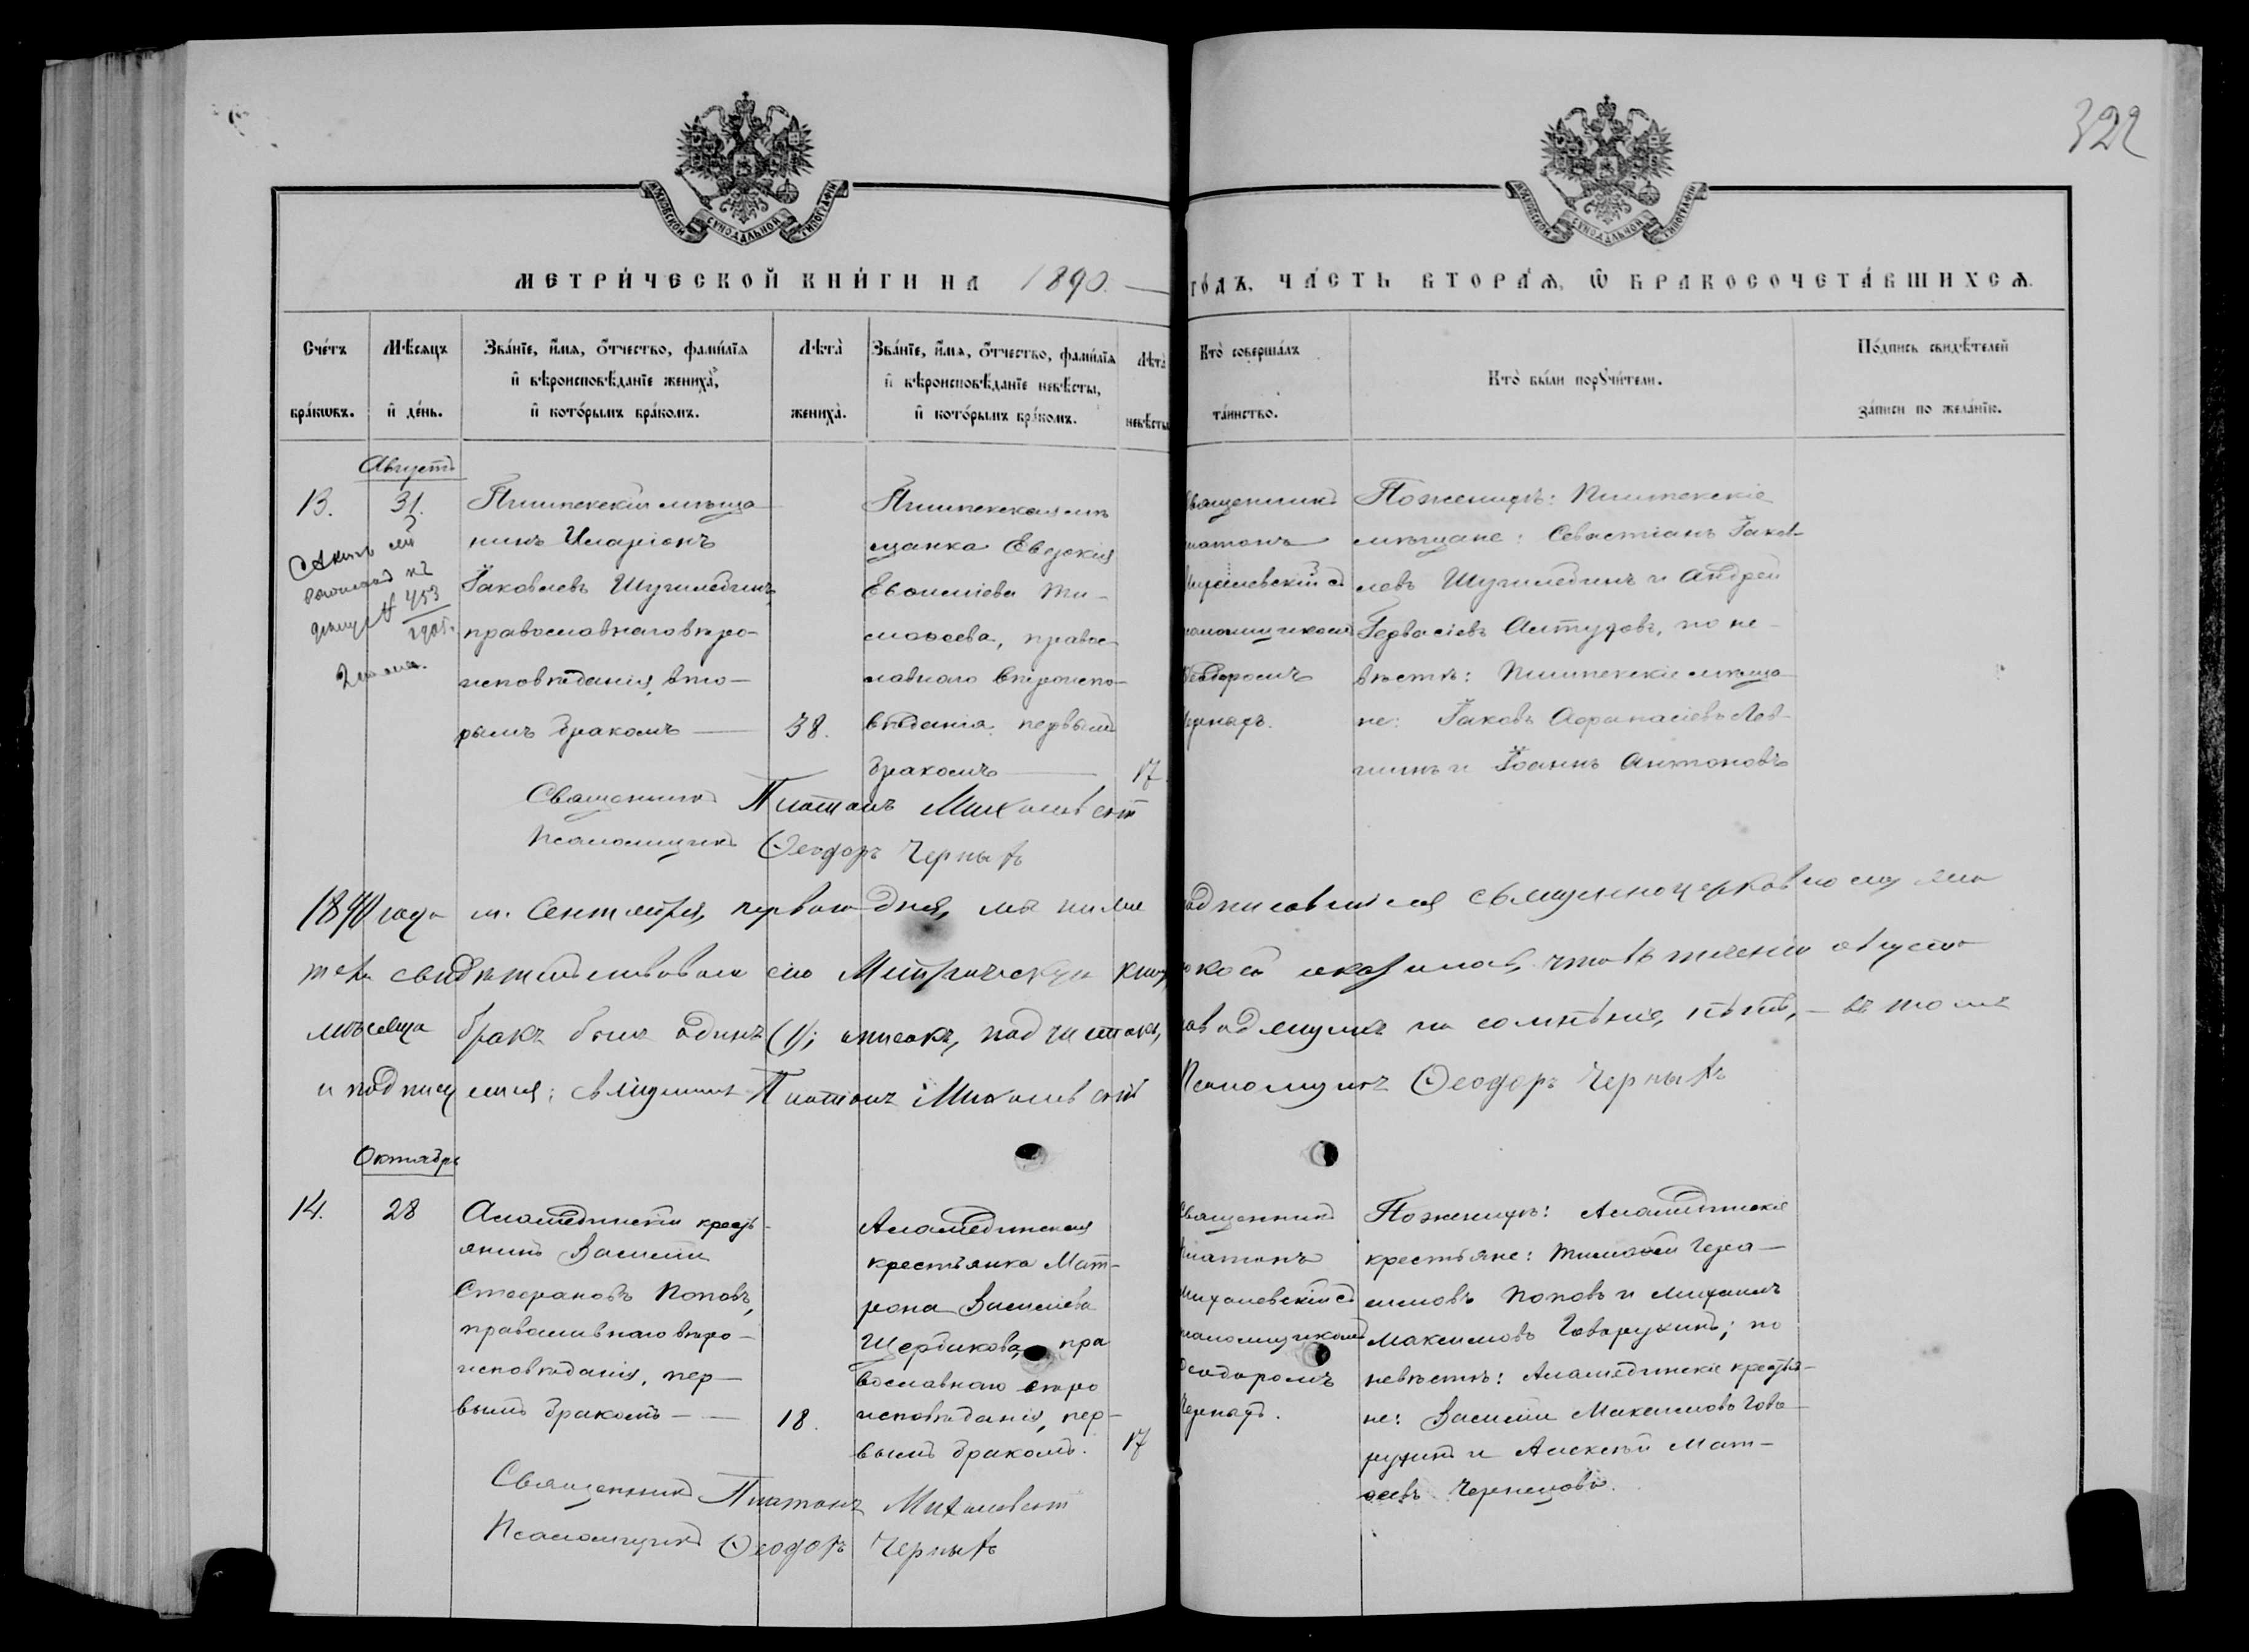 322
МОСКОВСКОЙ СѴНОДАЛЬНОЙ ТИПОГРАФІИ
МОСКОВСКОЙ СѴНОДАЛЬНОЙ ТИПОГРАФІИ
МЕТРИ́ЧЕСКОЙ КНИ́ГИ НА 1890. —
ГО́ДЪ, ЧА́СТЬ ВТОРА́Ѧ, Ѽ БРАКОСОЧЕТА́ВШИХСѦ.
Сче́тъ бра́кѡвъ.
Мѣ́сяцъ и҆ де́нь.
Зва́нїе, и҆́мѧ, ѻ҆́тчество, фами́лїѧ
и҆ вѣроисповѣ́данїе жениха̀,
и҆ кото́рымъ бра́комъ.
Лѣта̀ жениха̀.
Зва́нїе, и҆́мѧ, ѻ҆́тчество, фами́лїѧ
и҆ вѣроисповѣ́данїе невѣ́сты,
и҆ кото́рымъ бра́комъ.
Лѣта̀ невѣ́сты
Кто̀ соверша́лъ та́инство.
Кто̀ бы́ли порꙋчи́тели.
По́дпись свидѣ́телей
за́писи по жела́нїю.
Августъ
13.
31.
№ 453
1905.
Пишпекскій мѣща
нинъ Иларіонъ
Іаковлевъ Шугилебинъ,
православнаго вѣро-
исповѣданія, вто-
рымъ бракомъ —
38.
Пишпекская мѣ
щанка Евдокія
Ти-
моѳеева, правос
лавнаго вѣроиспо-
вѣданія, первымъ
бракомъ —
17.
Священникъ
латонъ
Михалевскій съ
саломщикомъ
Ѳеодоромъ
Чернахъ.
По женихѣ: Пишпекскіе
мѣщане: Севастіанъ Іаков-
левъ Шугилебинъ и Андрей
Гервасіевъ Алтуховъ, по не-
вѣстѣ: Пишпекскіе мѣща
не: Іаковъ Аѳанасіевъ Лов-
и Іоаннъ Антоновъ
Священникъ Платонъ Михалевскій
Псаломщикъ Ѳеодоръ Черныхъ
1890 года м. Сентября, перваго дня, мы ниже
подписавшіеся священноцерковнослужи
тели свидѣтельствовали сію Метрическую книгу,
оказалось, что въ теченіи августа
мѣсяца бракъ былъ одинъ (1); описокъ, подчистокъ,
наводящихъ на сомнѣніе, нѣтъ, — въ томъ
и подписуемся: священникъ Платонъ Михалевскій
Псаломщикъ Ѳеодоръ Черныхъ
Октябрь
14.
28
Аламединскій кресть-
янинъ Василій
Стефановъ Поповъ,
православнаго вѣро-
исповѣданія, пер-
вымъ бракомъ — —
18.
Аламединская
крестьянка Мат-
рона Васильева
Щербикова, пра
вославнаго вѣро
исповѣданія, пер-
вымъ бракомъ.
17
Священникъ
Платонъ
Михалевскій съ
псаломщикомъ
Ѳеодоромъ
Чернахъ.
По женихѣ: Аламединскіе
крестьяне: Тимоѳей Гера-
симовъ Поповъ и Михаилъ
Максимовъ Говорухинъ; по
невѣстѣ: Аламединскіе крестья-
не: Василій Максимовъ Гово
рухинъ и Алексѣй Мат-
ѳеевъ Чернецовъ.
Священникъ Платонъ Михалевскій
Псаломщикъ Ѳеодоръ Черныхъ